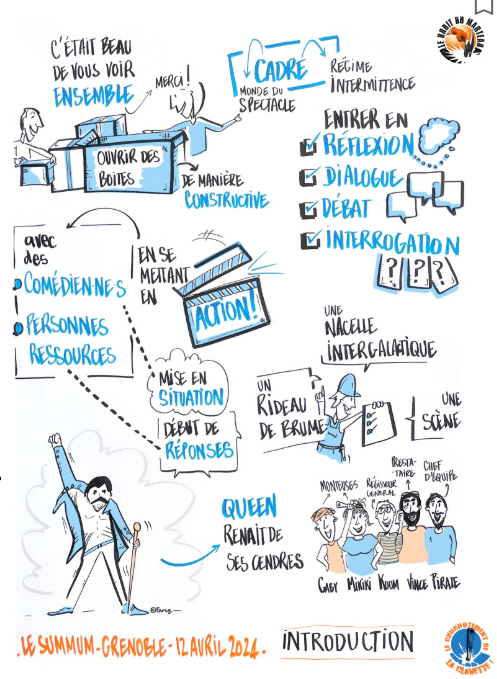 LE BRUIT DU MARTEAU
C'ÉTAIT BEAU
DE VOUS VOIR
ENSEMBLE
MERCI !
CADRE
MONDE DU
SPECTACLE
RÉGIME
INTERMITTENCE
OUVRIR DES
BOITES
DE MANIÈRE
CONSTRUCTIVE
ENTRER EN
RÉFLEXION
DIALOGUE
DÉBAT
INTERROGATION
? ? ?
avec
des
COMÉDIEN·NE·S
PERSONNES
RESSOURCES
EN SE
METTANT
EN
ACTION!
MISE EN
SITUATION
DÉBUT DE
RÉPONSES
UNE
NACELLE
INTERGALATIQUE
UN
RIDEAU
DE BRUME
UNE
SCÈNE
QUEEN
RENAIT DE
SES CENDRES
MONTEUSES
RÉGISSEUR
GENERAL
PRESTA-
TAIRE
CHEF
D'ÉQUIPE
GABY MIKIKI KOOM VINCE PIRATE
.LE SUMMUM-GRENOBLE-12 AVRIL 2024.
INTRODUCTION
LE CHUCHOTEMENT DE
LA CLAVETTE !